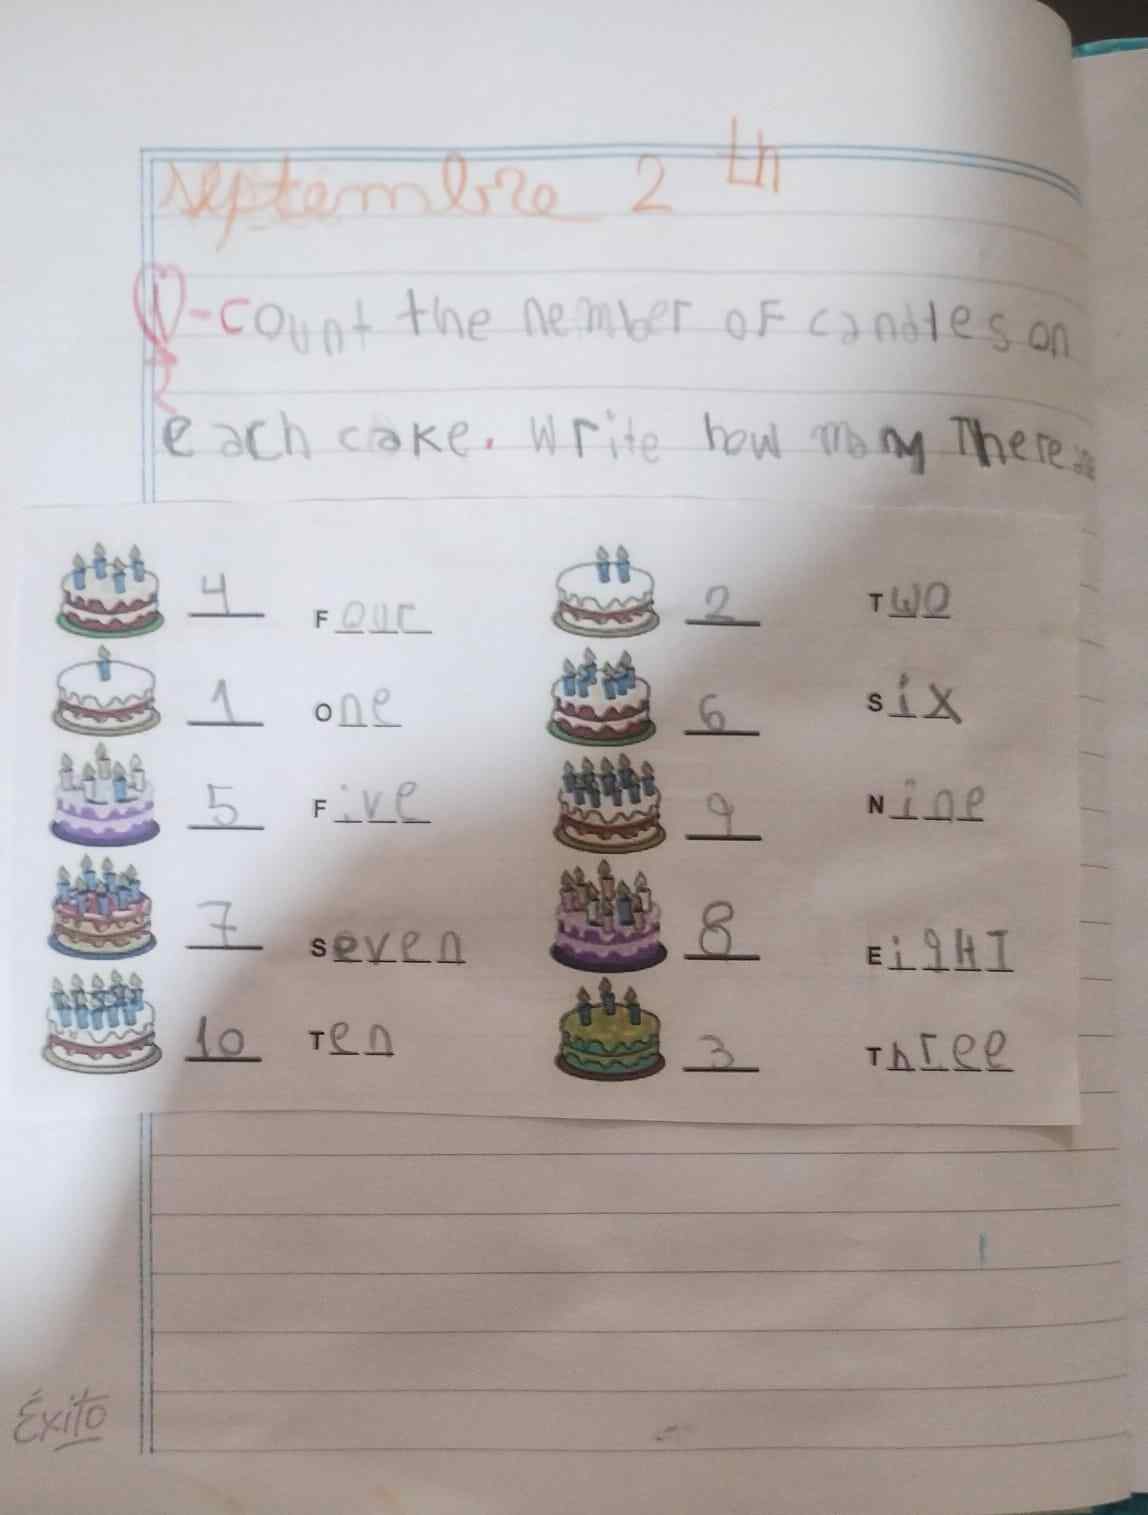 Septembre 2 th
1-count the nember of candles on
each cake. Write how many There are
4 Four 2 Two
1 One 6 six
5 Five 9 Nine
7 seven 8 EighT
10 Ten 3 Three
Éxito